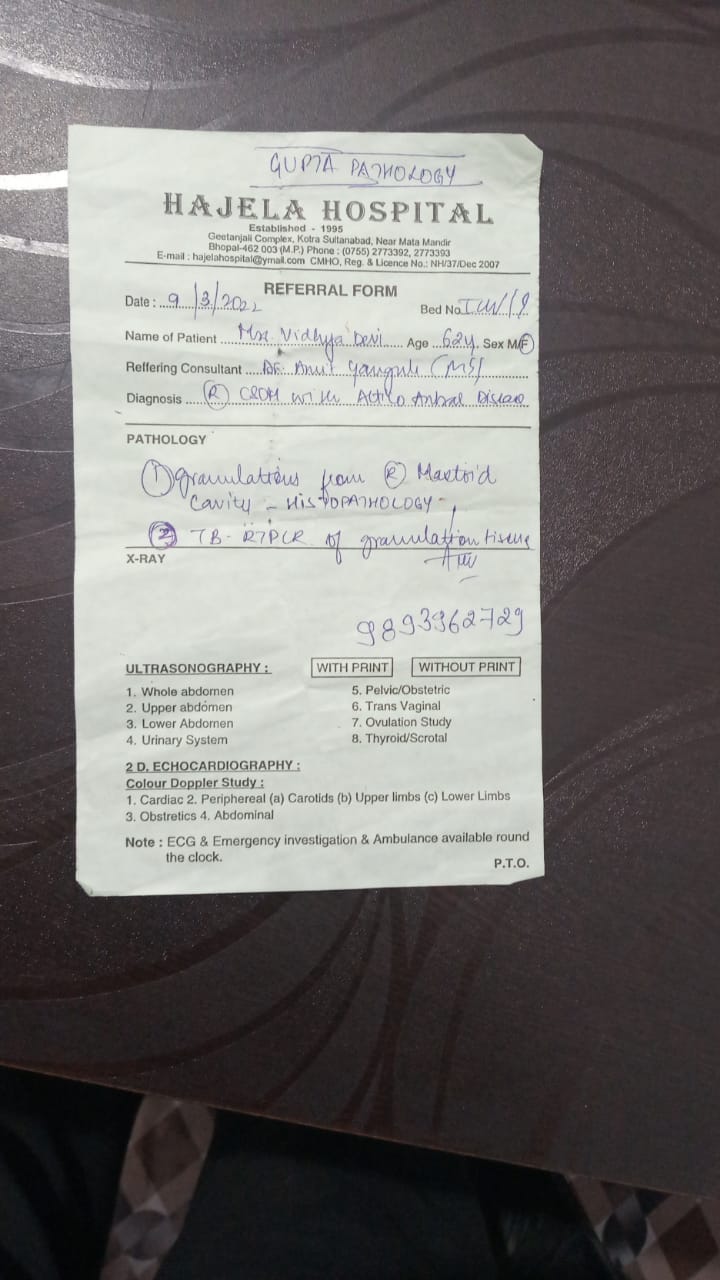 GUPTA PATHOLOGY
HAJELA HOSPITAL
Established - 1995
Geetanjali Complex, Kotra Sultanabad, Near Mata Mandir
Bhopal-462 003 (M.P.) Phone : (0755) 2773392, 2773393
E-mail : hajelahospital@ymail.com CMHO, Reg. & Licence No.: NH/37/Dec 2007
REFERRAL FORM
Date : 9/3/2022 Bed No.
Name of Patient Mrs. Vidhya Devi Age 62y. Sex M/F
Reffering Consultant Dr. Amit Ganguli (MS)
Diagnosis (R) CSOM with Disease
PATHOLOGY
(1) granulations from (R) Mastoid
cavity - HISTOPATHOLOGY
(2) TB-RTPCR of granulation tissue
X-RAY
9893962729
ULTRASONOGRAPHY : WITH PRINT WITHOUT PRINT
1. Whole abdomen 5. Pelvic/Obstetric
2. Upper abdomen 6. Trans Vaginal
3. Lower Abdomen 7. Ovulation Study
4. Urinary System 8. Thyroid/Scrotal
2 D. ECHOCARDIOGRAPHY :
Colour Doppler Study :
1. Cardiac 2. Periphereal (a) Carotids (b) Upper limbs (c) Lower Limbs
3. Obstretics 4. Abdominal
Note : ECG & Emergency investigation & Ambulance available round
the clock.
P.T.O.